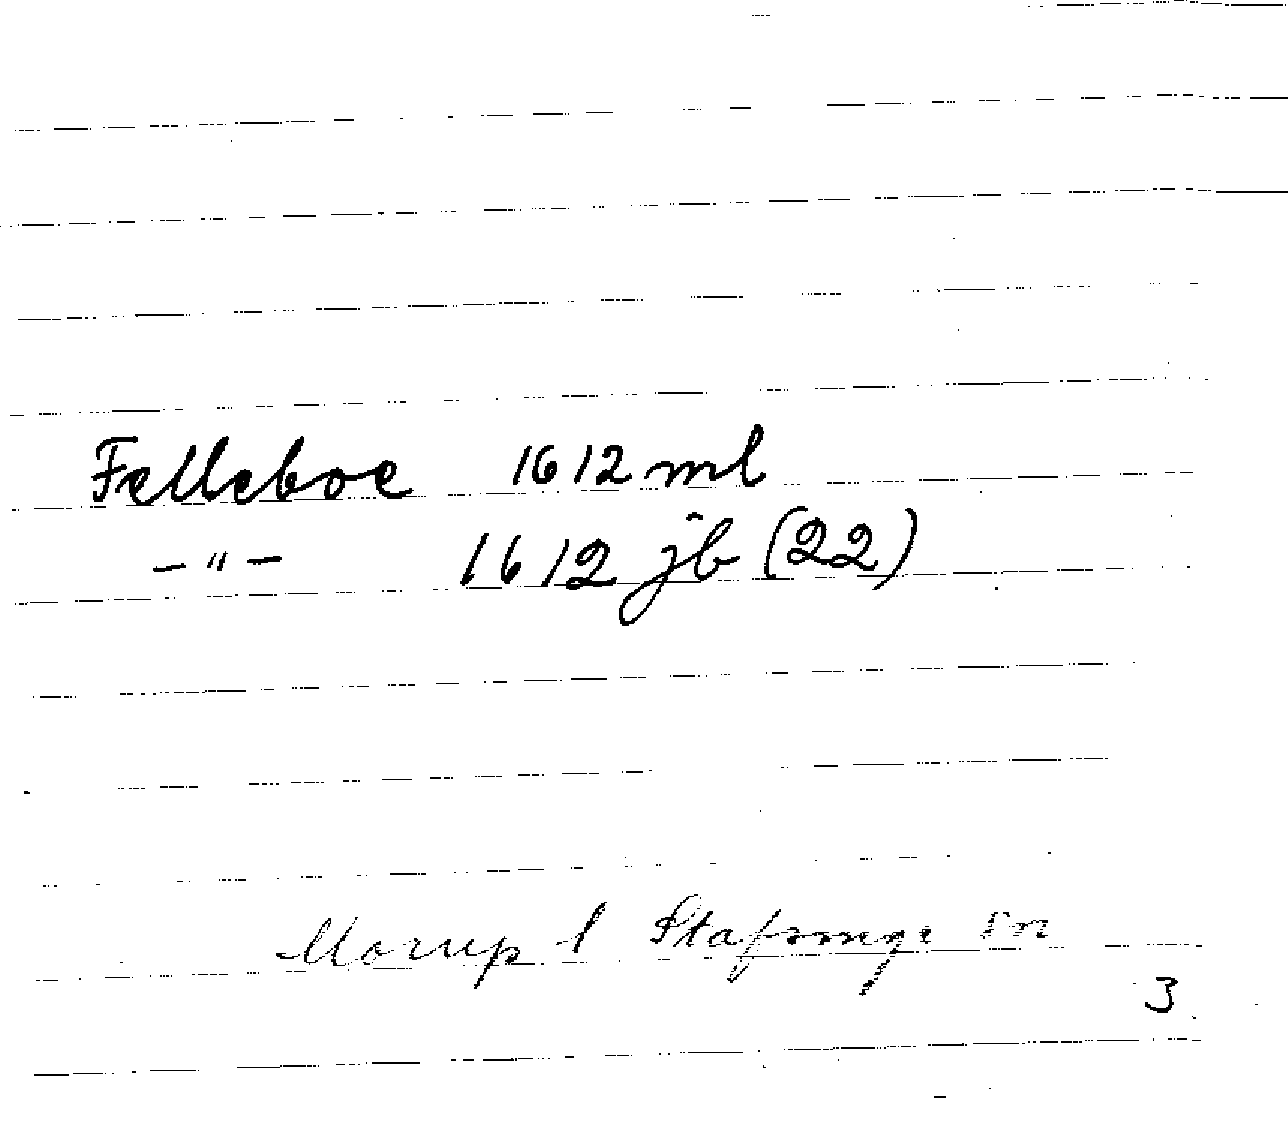 Felleboe 1612 ml
— " — 1612 jb (22)
Morup l Stafsinge sn
3